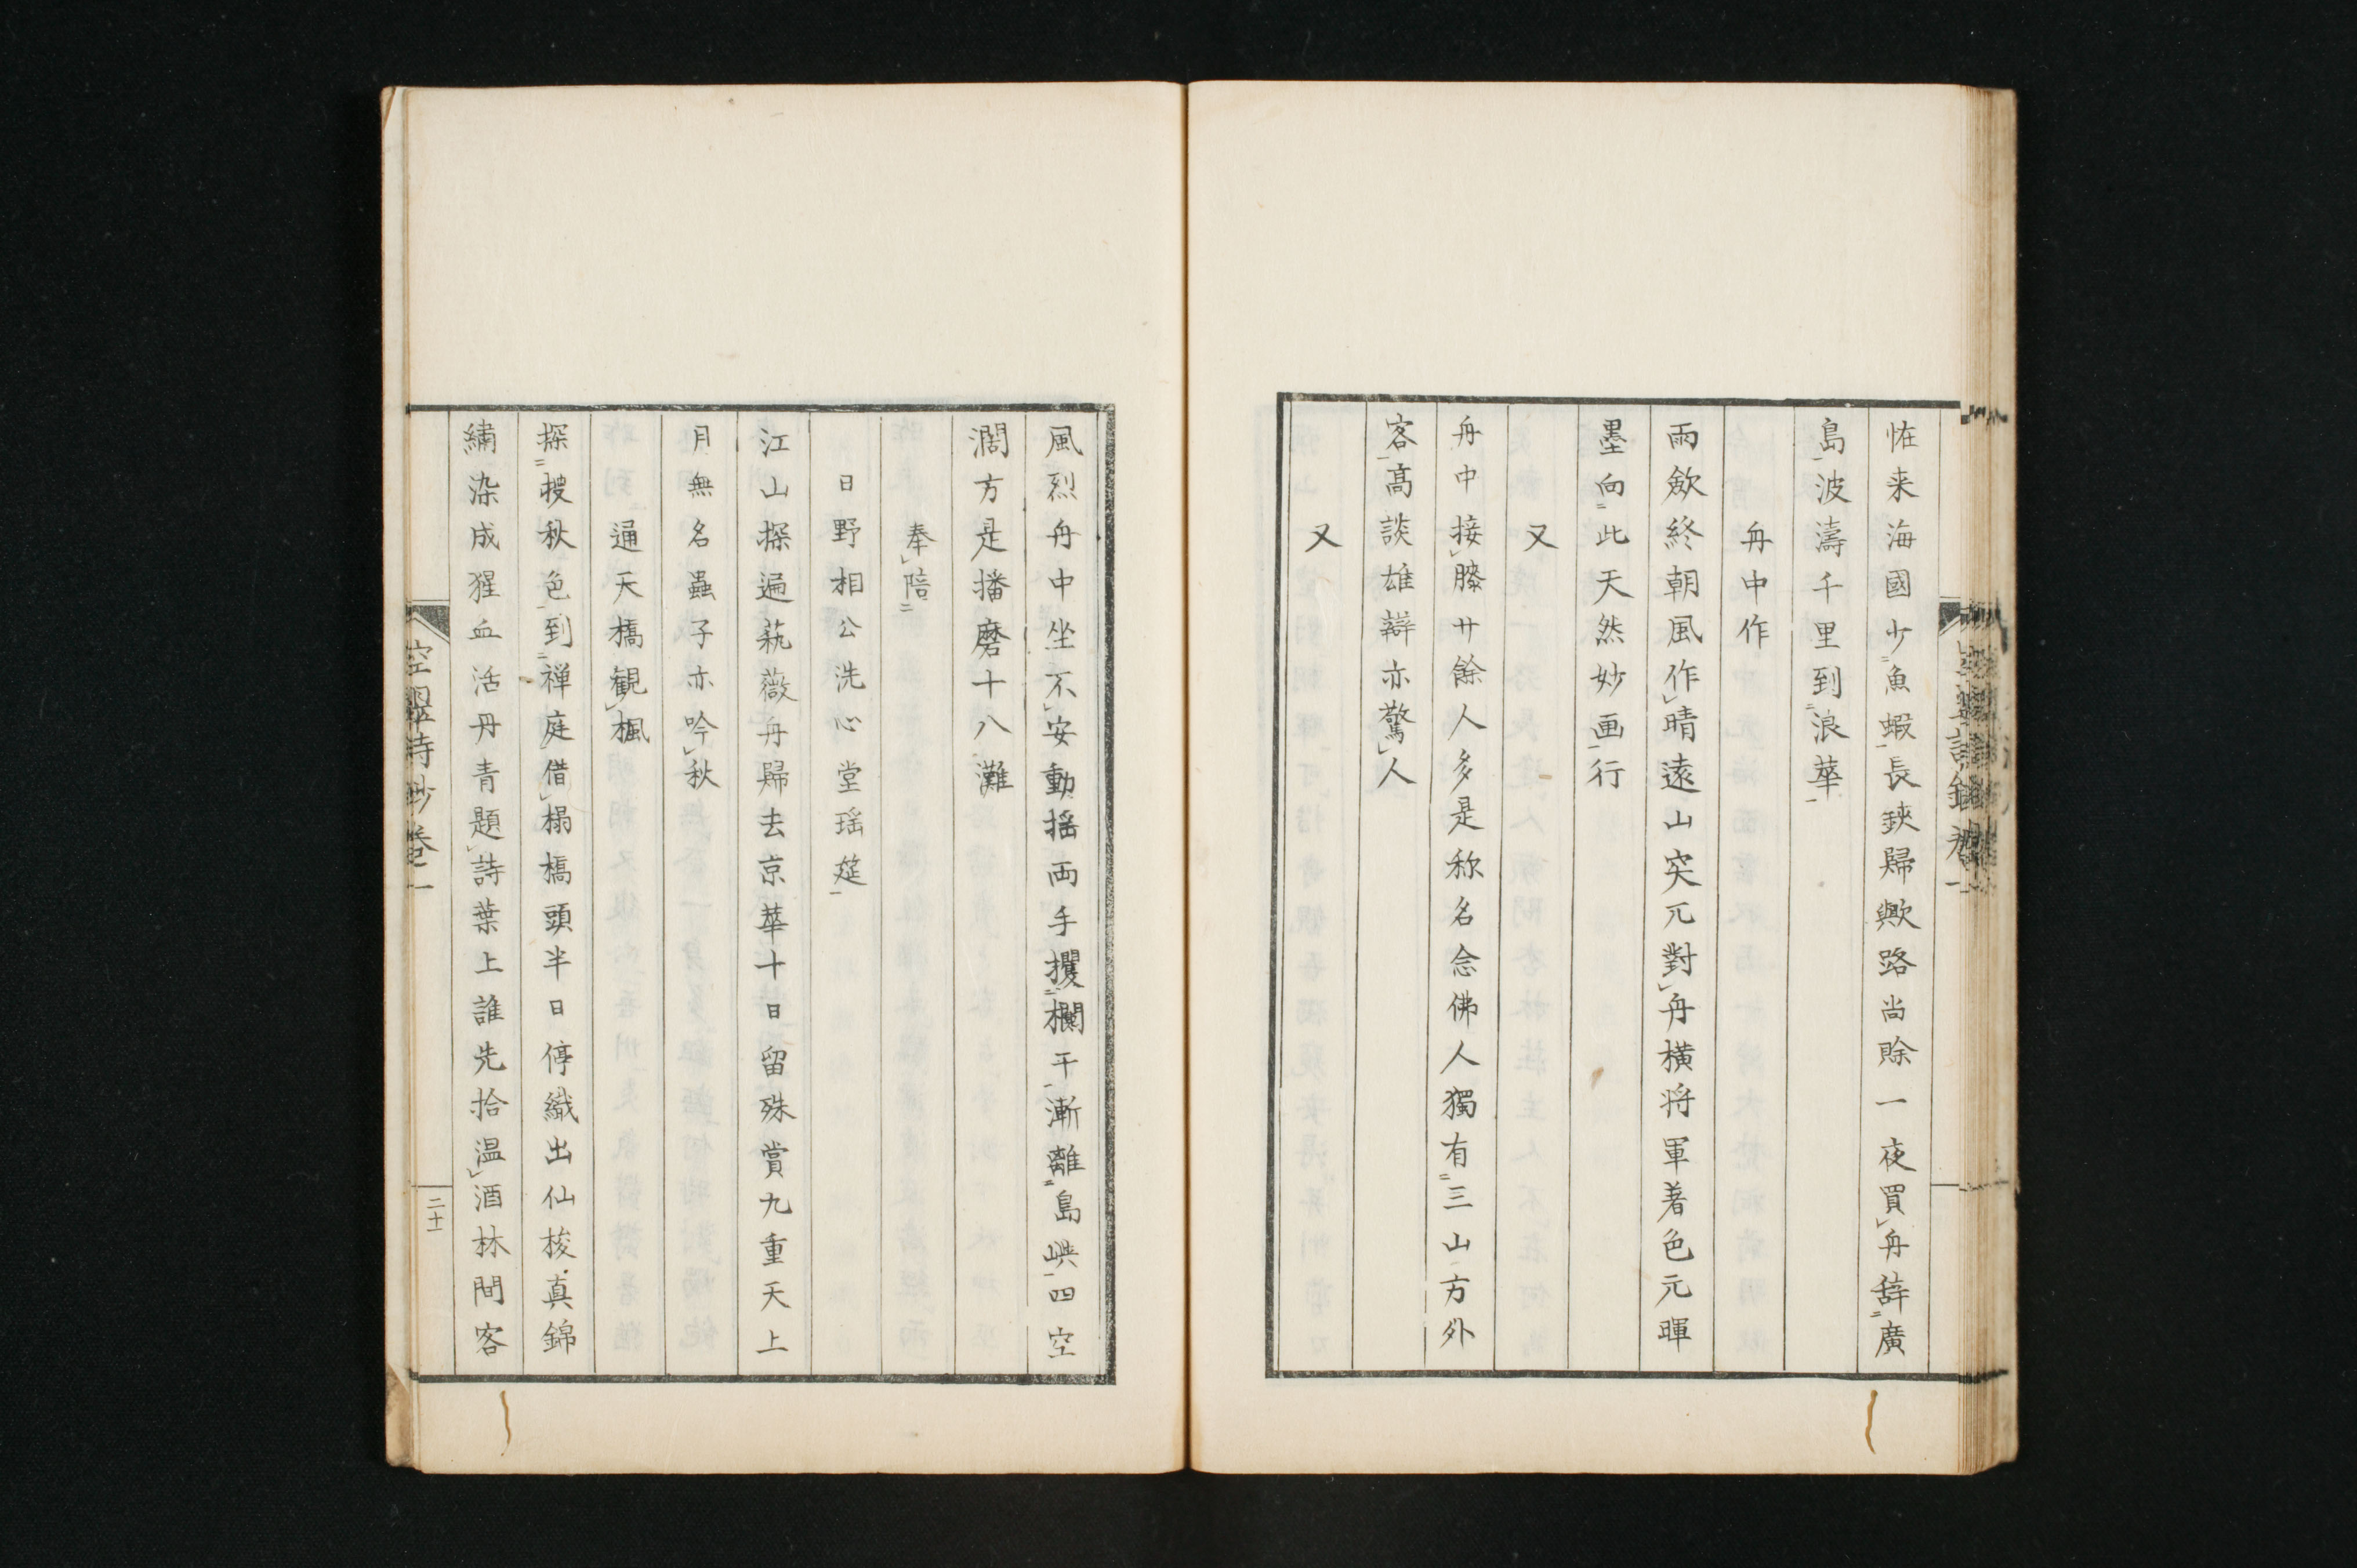 恠来海國少魚蝦長鋏歸歟路尚賒一夜買舟辭廣
島波濤千里到浪華
舟中作
雨歛終朝風作晴遠山突兀對舟横将軍著色元暉
墨向此天然妙画行
又
舟中接膝廿餘人多是称名念佛人獨有三山方外
客高談雄辯亦驚人
又
風烈舟中坐不安動揺両手攫欄干漸離島嶼四空
濶方是播磨十八灘
奉陪
日野相公洗心堂瑶筵
江山探遍蓺薇舟歸去京華十日留殊賞九重天上
月無名蟲子亦吟秋
通天橋観楓
探捜秋色到禅庭借榻橋頭半日停織出仙梭真錦
繍染成猩血活丹青題詩葉上誰先拾温酒林間客
空翠詩鈔巻一
二十